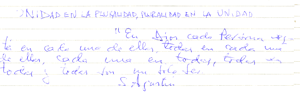 UNIDAD EN LA PLURALIDAD, PLURALIDAD EN LA UNIDAD
"En Dios cada Persona es-
tá en cada una de ellas, todas en cada una
de ellas, cada una en todas, todas en
todas y todas son un solo ser.
S. Agustín